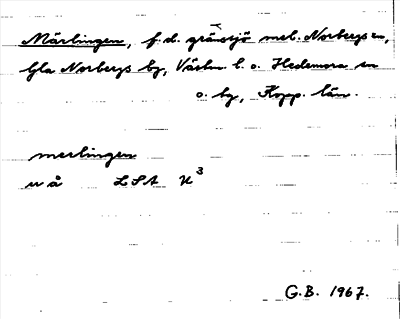 Märlingen, f.d. gränssjö mel. Norbergs sn,
Gla Norbergs bg, Västm l. o. Hedemora sn
o. bg, Kopp. län.
merlingen
u å LSA U³
G.B. 1967.